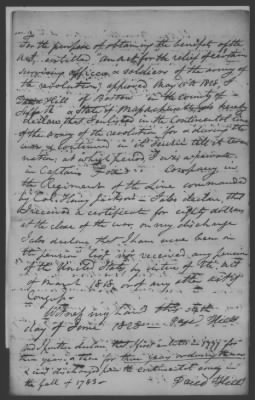 For the purpose of obtaining the benefit of the
act, entitled, an act for the relief of certain
surviving officers & soldiers of the army of
the revolution, approved May 15th 1828, I
Hill of Boston in the county of
Suffolk State of Massachusetts do hereby
declare that I enlisted in the Continental line
of the army of the revolution for & during the
war & continued in its service till its termi-
nation, at which period I was a private
in Captain Fox company in
the Regiment of the Line commanded
by Col. Henry Jackson. I also declare, that
I received a certificate for eighty dollars
at the close of the war, on my discharge
I also declare that I have never been on
the pension list nor received any pension
of the United States, by virtue of the act
of March 1818, or of any other act of
Congress.
Witness my hand this
day of June 1828 Hill
I further declare that I first enlisted in 1777 for
three years & then for during the war
& was discharged from the continental army in
the fall of 1783.
Hill